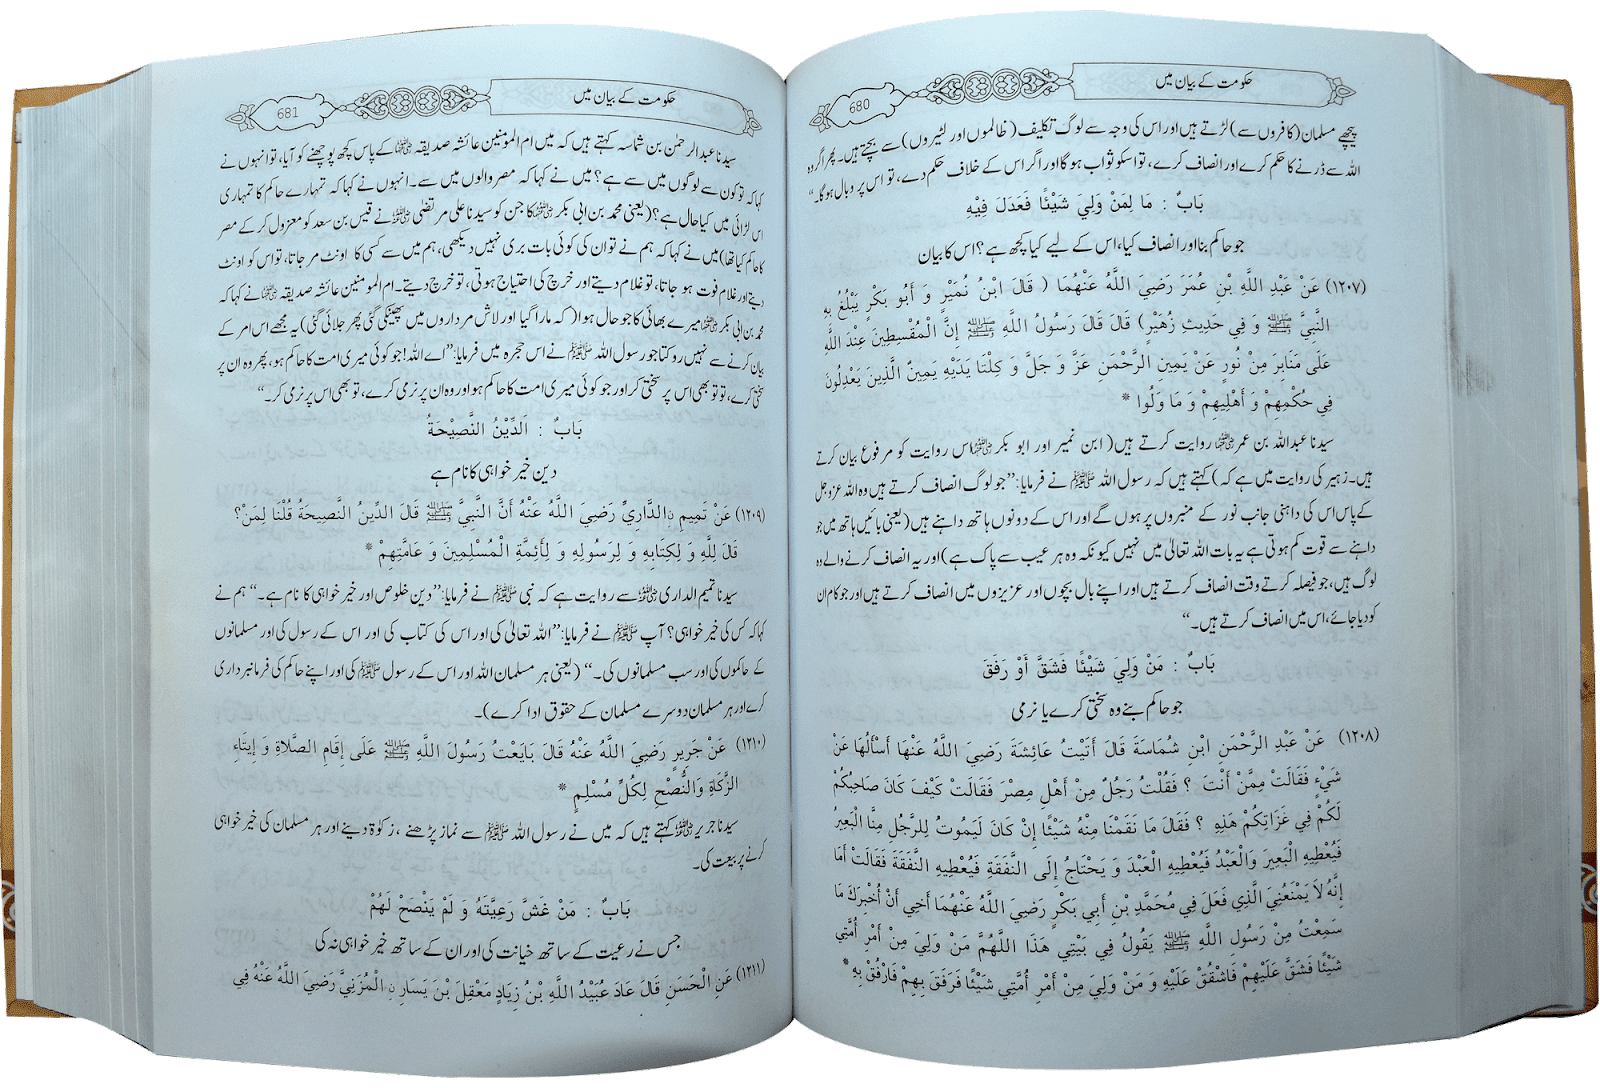 حکومت کے بیان میں
680
پیچھے مسلمان (کافروں سے) لڑتے ہیں اور اس کی وجہ سے لوگ تکلیف (ظالموں اور لٹیروں) سے بچتے ہیں۔ پھر اگر وہ
اللہ سے ڈرنے کا حکم کرے اور انصاف کرے، تو اسکو ثواب ہوگا اور اگر اس کے خلاف حکم دے، تو اس پر وبال ہوگا۔“
بَابٌ : مَا لِمَنْ وَلِيَ شَيْئًا فَعَدَلَ فِيْهِ
جو حاکم بنا اور انصاف کیا، اس کے لیے کیا کچھ ہے؟ اس کا بیان
(١٢٠٧) عَنْ عَبْدِ اللَّهِ بْنِ عُمَرَ رَضِيَ اللَّهُ عَنْهُمَا ( قَالَ ابْنُ نُمَيْرٍ وَ أَبُو بَكْرٍ يَبْلُغُ بِهِ
النَّبِيَّ ﷺ وَ فِي حَدِيثِ زُهَيْرٍ) قَالَ قَالَ رَسُولُ اللَّهِ ﷺ إِنَّ الْمُقْسِطِينَ عِنْدَ اللَّهِ
عَلَى مَنَابِرَ مِنْ نُورٍ عَنْ يَمِينِ الرَّحْمَنِ عَزَّ وَ جَلَّ وَ كِلْتَا يَدَيْهِ يَمِينٌ الَّذِينَ يَعْدِلُونَ
فِي حُكْمِهِمْ وَ أَهْلِيهِمْ وَ مَا وَلُوا *
سیدنا عبداللہ بن عمر ؓ روایت کرتے ہیں (ابن نمیر اور ابو بکر ؓ اس روایت کو مرفوع بیان کرتے
ہیں۔ زہیر کی روایت میں ہے کہ) کہتے ہیں کہ رسول اللہ ﷺ نے فرمایا: ”جو لوگ انصاف کرتے ہیں وہ اللہ عزوجل
کے پاس اس کی داہنی جانب نور کے منبروں پر ہوں گے اور اس کے دونوں ہاتھ داہنے ہیں (یعنی بائیں ہاتھ میں جو
داہنے سے قوت کم ہوتی ہے یہ بات اللہ تعالیٰ میں نہیں کیونکہ وہ ہر عیب سے پاک ہے) اور یہ انصاف کرنے والے وہ
لوگ ہیں، جو فیصلہ کرتے وقت انصاف کرتے ہیں اور اپنے بال بچوں اور عزیزوں میں انصاف کرتے ہیں اور جو کام ان
کو دیا جائے، اس میں انصاف کرتے ہیں۔“
بَابٌ : مَنْ وَلِيَ شَيْئًا فَشَقَّ أَوْ رَفَقَ
جو حاکم بنے وہ سختی کرے یا نرمی
(١٢٠٨) عَنْ عَبْدِ الرَّحْمَنِ ابْنِ شُمَاسَةَ قَالَ أَتَيْتُ عَائِشَةَ رَضِيَ اللَّهُ عَنْهَا أَسْأَلُهَا عَنْ
شَيْءٍ فَقَالَتْ مِمَّنْ أَنْتَ ؟ فَقُلْتُ رَجُلٌ مِنْ أَهْلِ مِصْرَ فَقَالَتْ كَيْفَ كَانَ صَاحِبُكُمْ
لَكُمْ فِي غَزَاتِكُمْ هَذِهِ ؟ فَقَالَ مَا نَقَمْنَا مِنْهُ شَيْئًا إِنْ كَانَ لَيَمُوتُ لِلرَّجُلِ مِنَّا الْبَعِيرُ
فَيُعْطِيهِ الْبَعِيرَ وَالْعَبْدُ فَيُعْطِيهِ الْعَبْدَ وَ يَحْتَاجُ إِلَى النَّفَقَةِ فَيُعْطِيهِ النَّفَقَةَ فَقَالَتْ أَمَا
إِنَّهُ لاَ يَمْنَعُنِيَ الَّذِي فَعَلَ فِي مُحَمَّدِ بْنِ أَبِي بَكْرٍ رَضِيَ اللَّهُ عَنْهُمَا أَخِي أَنْ أُخْبِرَكَ مَا
سَمِعْتُ مِنْ رَسُولِ اللَّهِ ﷺ يَقُولُ فِي بَيْتِي هَذَا اللَّهُمَّ مَنْ وَلِيَ مِنْ أَمْرِ أُمَّتِي
شَيْئًا فَشَقَّ عَلَيْهِمْ فَاشْقُقْ عَلَيْهِ وَ مَنْ وَلِيَ مِنْ أَمْرِ أُمَّتِي شَيْئًا فَرَفَقَ بِهِمْ فَارْفُقْ بِهِ *
حکومت کے بیان میں
681
سیدنا عبدالرحمٰن بن شماسہ کہتے ہیں کہ میں ام المومنین عائشہ صدیقہ ؓ کے پاس کچھ پوچھنے کو آیا، تو انہوں نے
کہا کہ تو کون سے لوگوں میں سے ہے؟ میں نے کہا کہ مصر والوں میں سے۔ انہوں نے کہا کہ تمہارے حاکم کا تمہاری
اس لڑائی میں کیا حال ہے؟ (یعنی محمد بن ابی بکر ؓ کا جن کو سیدنا علی مرتضیٰ ؓ نے قیس بن سعد کو معزول کر کے مصر
کا حاکم کیا تھا) میں نے کہا کہ ہم نے تو ان کی کوئی بات بری نہیں دیکھی، ہم میں سے کسی کا اونٹ مر جاتا، تو اس کو اونٹ
دیتے اور غلام فوت ہو جاتا، تو غلام دیتے اور خرچ کی احتیاج ہوتی، تو خرچ دیتے۔ ام المومنین عائشہ صدیقہ ؓ نے کہا کہ
محمد بن ابی بکر ؓ میرے بھائی کا جو حال ہوا (کہ مارا گیا اور لاش مرداروں میں پھینکی گئی پھر جلائی گئی) یہ مجھے اس امر کے
بیان کرنے سے نہیں روکتا جو رسول اللہ ﷺ نے اس حجرہ میں فرمایا: ”اے اللہ! جو کوئی میری امت کا حاکم ہو، پھر وہ ان پر
سختی کرے، تو تو بھی اس پر سختی کر اور جو کوئی میری امت کا حاکم ہو اور وہ ان پر نرمی کرے، تو بھی اس پر نرمی کر۔“
بَابٌ : اَلدِّيْنُ النَّصِيْحَةُ
دین خیر خواہی کا نام ہے
(١٢٠٩) عَنْ تَمِيمِ نِ الدَّارِيِّ رَضِيَ اللَّهُ عَنْهُ أَنَّ النَّبِيَّ ﷺ قَالَ الدِّينُ النَّصِيحَةُ قُلْنَا لِمَنْ؟
قَالَ لِلَّهِ وَ لِكِتَابِهِ وَ لِرَسُولِهِ وَ لِأَئِمَّةِ الْمُسْلِمِينَ وَ عَامَّتِهِمْ *
سیدنا تمیم الداری ؓ سے روایت ہے کہ نبی ﷺ نے فرمایا: ”دین خلوص اور خیر خواہی کا نام ہے۔“ ہم نے
کہا کہ کس کی خیر خواہی؟ آپ ﷺ نے فرمایا: ”اللہ تعالیٰ کی اور اس کی کتاب کی اور اس کے رسول کی اور مسلمانوں
کے حاکموں کی اور سب مسلمانوں کی۔“ (یعنی ہر مسلمان اللہ اور اس کے رسول ﷺ کی اور اپنے حاکم کی فرمانبرداری
کرے اور ہر مسلمان دوسرے مسلمان کے حقوق ادا کرے)۔
(١٢١٠) عَنْ جَرِيرٍ رَضِيَ اللَّهُ عَنْهُ قَالَ بَايَعْتُ رَسُولَ اللَّهِ ﷺ عَلَى إِقَامِ الصَّلاَةِ وَ إِيتَاءِ
الزَّكَاةِ وَالنُّصْحِ لِكُلِّ مُسْلِمٍ *
سیدنا جریر ؓ کہتے ہیں کہ میں نے رسول اللہ ﷺ سے نماز پڑھنے ، زکوٰۃ دینے اور ہر مسلمان کی خیر خواہی
کرنے پر بیعت کی۔
بَابٌ : مَنْ غَشَّ رَعِيَّتَهُ وَ لَمْ يَنْصَحْ لَهُمْ
جس نے رعیت کے ساتھ خیانت کی اور ان کے ساتھ خیر خواہی نہ کی
(١٢١١) عَنِ الْحَسَنِ قَالَ عَادَ عُبَيْدُ اللَّهِ بْنُ زِيَادٍ مَعْقِلَ بْنَ يَسَارِ نِ الْمُزَنِيَّ رَضِيَ اللَّهُ عَنْهُ فِي